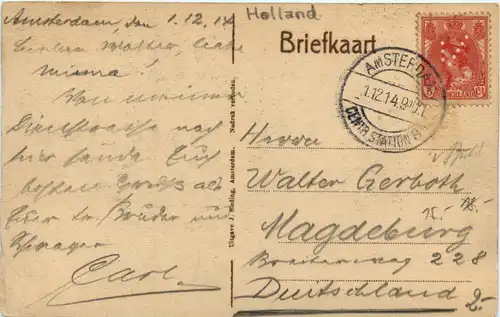 Amsterdam, den 1.12.14
Holland
Briefkaart
Lieber Walter, liebe
Minna!
Von meiner
Dienstreise nach
hier sende Euch
besten Gruß als
Euer tr. Bruder und
Schwager
Carl.
Uitgave J. Sleding, Amsterdam. Nadruk verboden.
AMSTERDAM
1.12.14.9
CENTR. STATION
5
NEDERLAND
ct
Herrn
Walter Gerboth
Magdeburg
Breiteweg 228
Deutschland
2.-